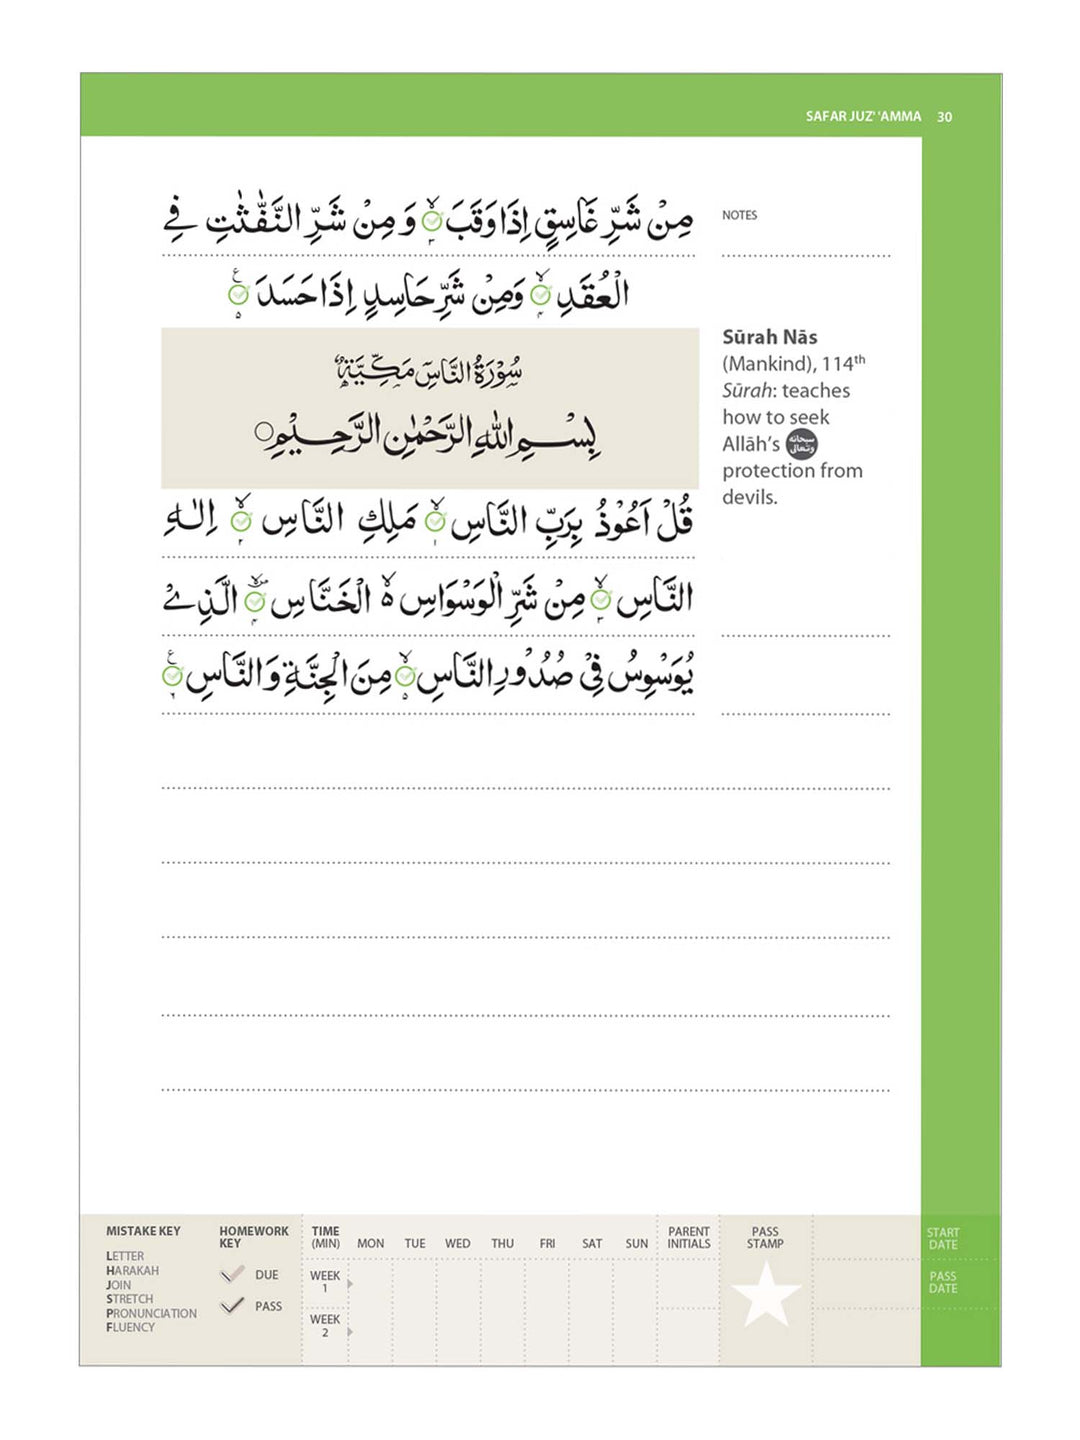 SAFAR JUZ' 'AMMA 30
مِنْ شَرِّ غَاسِقٍ اِذَا وَقَبَ ۙ۳ وَ مِنْ شَرِّ النَّفّٰثٰتِ فِي
الْعُقَدِ ۙ۴ وَمِنْ شَرِّ حَاسِدٍ اِذَا حَسَدَ ۵ ع
سُوْرَةُ النَّاسِ مَكِّيَّةٌ
بِسْمِ اللهِ الرَّحْمٰنِ الرَّحِيْمِ ○
قُلْ اَعُوْذُ بِرَبِّ النَّاسِ ۙ۱ مَلِكِ النَّاسِ ۙ۲ اِلٰهِ
النَّاسِ ۙ۳ مِنْ شَرِّ الْوَسْوَاسِ ەۙ الْخَنَّاسِ ۴ الَّذِيْ
يُوَسْوِسُ فِيْ صُدُوْرِ النَّاسِ ۙ۵ مِنَ الْجِنَّةِ وَالنَّاسِ ۶ ع
NOTES
Sūrah Nās
(Mankind), 114th
Sūrah: teaches
how to seek
Allāh's سبحانه وتعالى
protection from
devils.
MISTAKE KEY
LETTER
HARAKAH
JOIN
STRETCH
PRONUNCIATION
FLUENCY
HOMEWORK
KEY
DUE
PASS
TIME
(MIN) MON TUE WED THU FRI SAT SUN
WEEK
1
WEEK
2
PARENT
INITIALS
PASS
STAMP
START
DATE
PASS
DATE